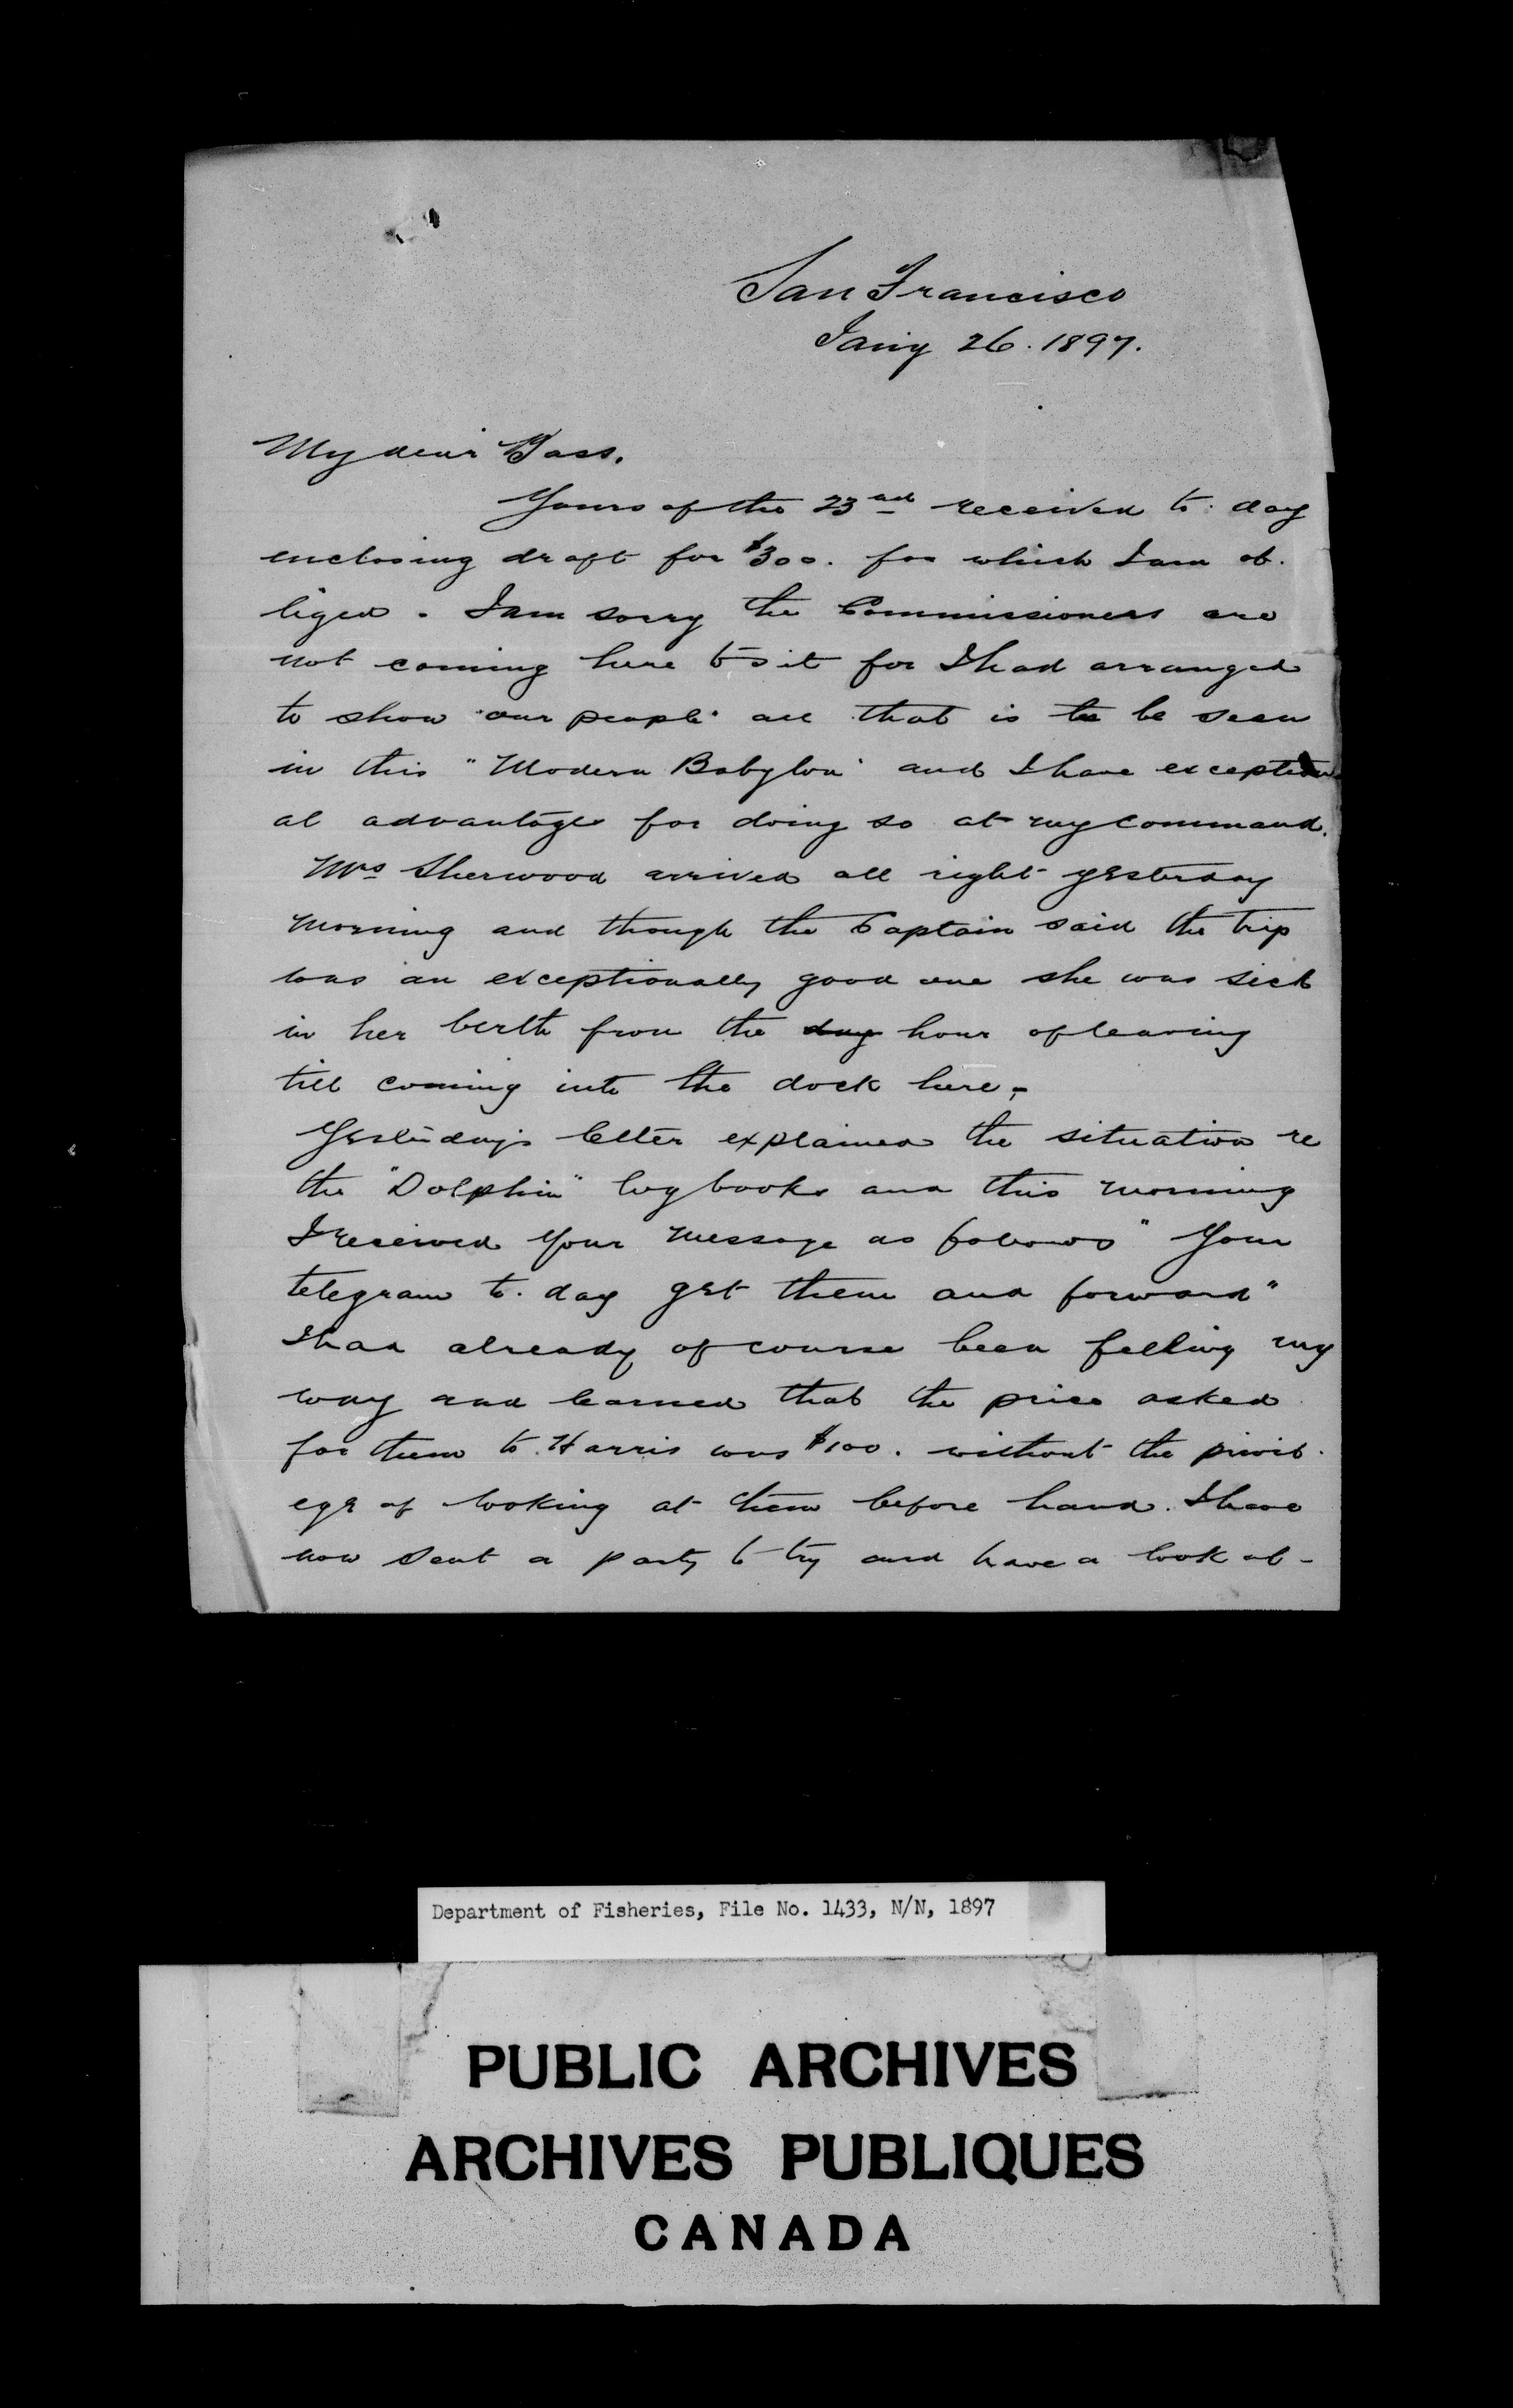 San Francisco
Jany 26. 1897.
My dear Bass.
Yours of the 23rd received to day
enclosing draft for $300. for which I am ob-
liged. I am sorry the Commissioners are
not coming here to sit for I had arranged
to show "our people" all that is to be seen
in this "Modern Babylon" and I have exception
al advantages for doing so at my command.
Mrs Sherwood arrived all right yesterday
morning and though the Captain said the trip
was an exceptionally good one she was sick
in her berth from the day hour of leaving
till coming into the dock here.
Yesterday's letter explained the situation re
the "Dolphin" log books and this morning
I received your message as follows "Your
telegram to-day get them and forward"
I had already of course been feeling my
way and learned that the price asked
for them to Harris was $100. without the privil-
ege of looking at them before hand. I have
now sent a party to try and have a look at-
Department of Fisheries, File No. 1433, N/N, 1897
PUBLIC ARCHIVES
ARCHIVES PUBLIQUES
CANADA